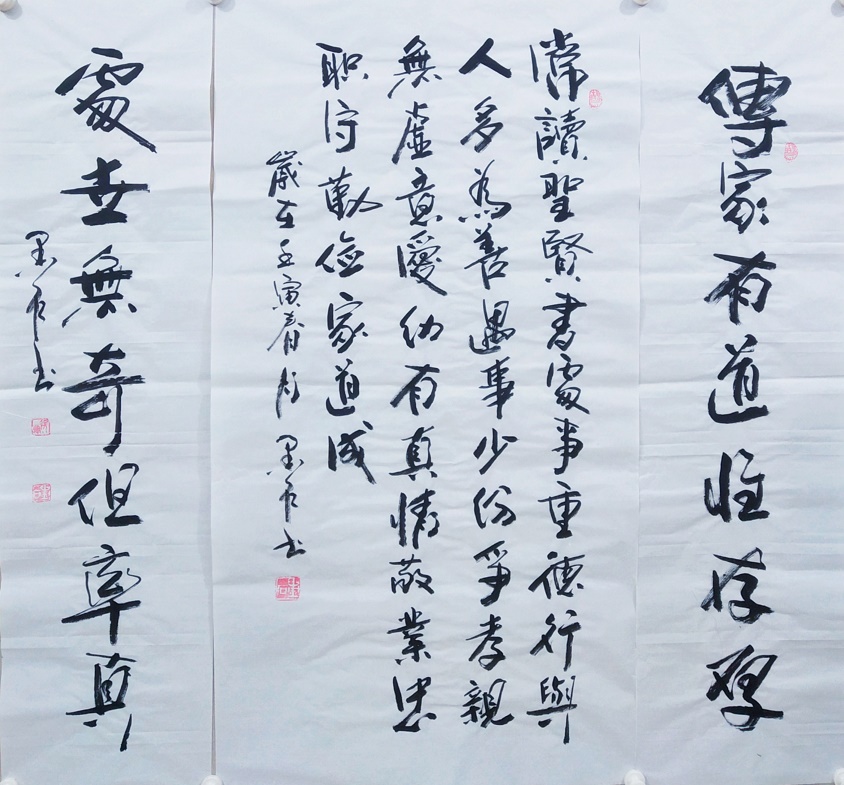 傳家有道惟存厚
常讀聖賢書處事重德行與
人多為善遇事少份爭孝親
無虛意愛幼有真情敬業忠
职守勤俭家道成
歲在壬寅春月 墨石书
處世無奇但率真
墨石书